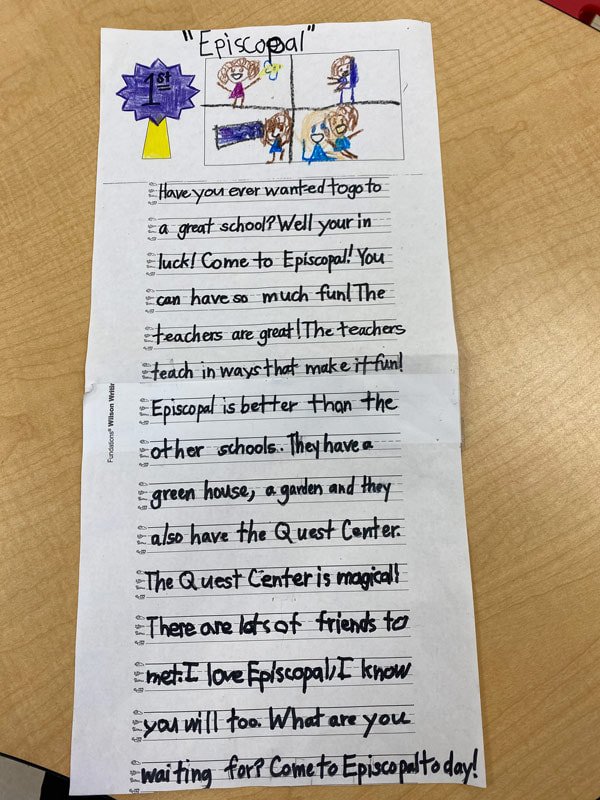 "Episcopal"
1st
Have you ever wanted to go to
a great school? Well your in
luck! Come to Episcopal! You
can have so much fun! The
teachers are great! The teachers
teach in ways that make it fun!
Episcopal is better than the
other schools. They have a
green house, a garden and they
also have the Quest Center.
The Quest Center is magical!
There are lots of friends to
met. I love Episcopal, I know
you will too. What are you
waiting for? Come to Episcopal to day!
Fundations® Wilson Writin